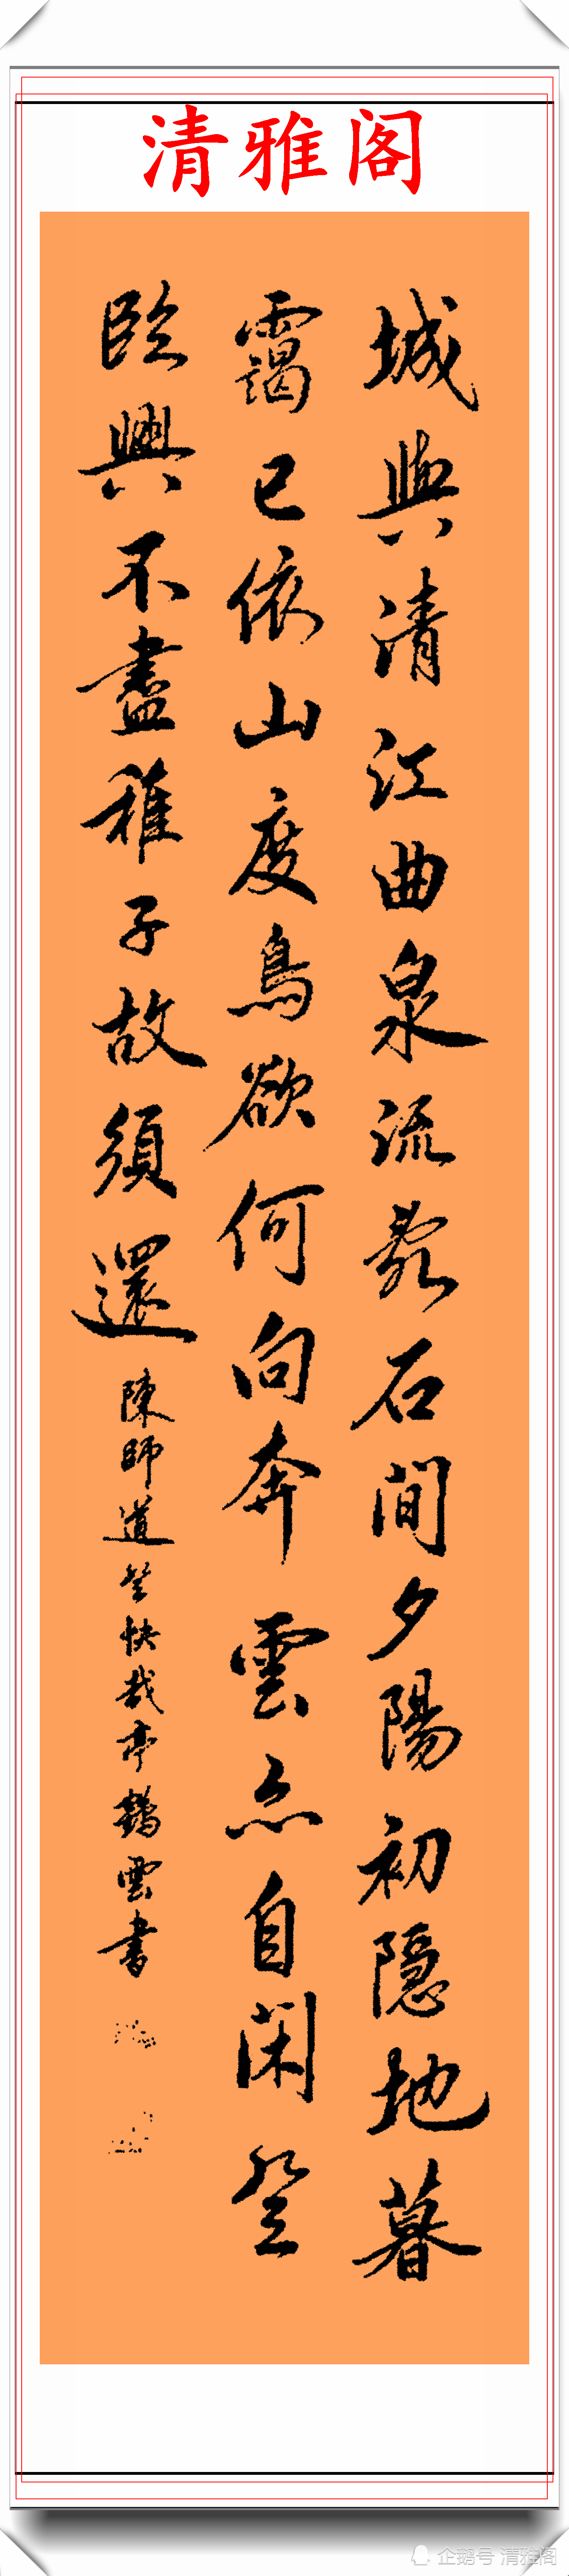 清雅阁
城與清江曲泉流亂石間夕陽初隱地暮
靄已依山度鳥欲何向奔雲亦自閑登
臨興不盡稚子故須還
陳師道登快哉亭鶴雲書
企鹅号 清雅阁